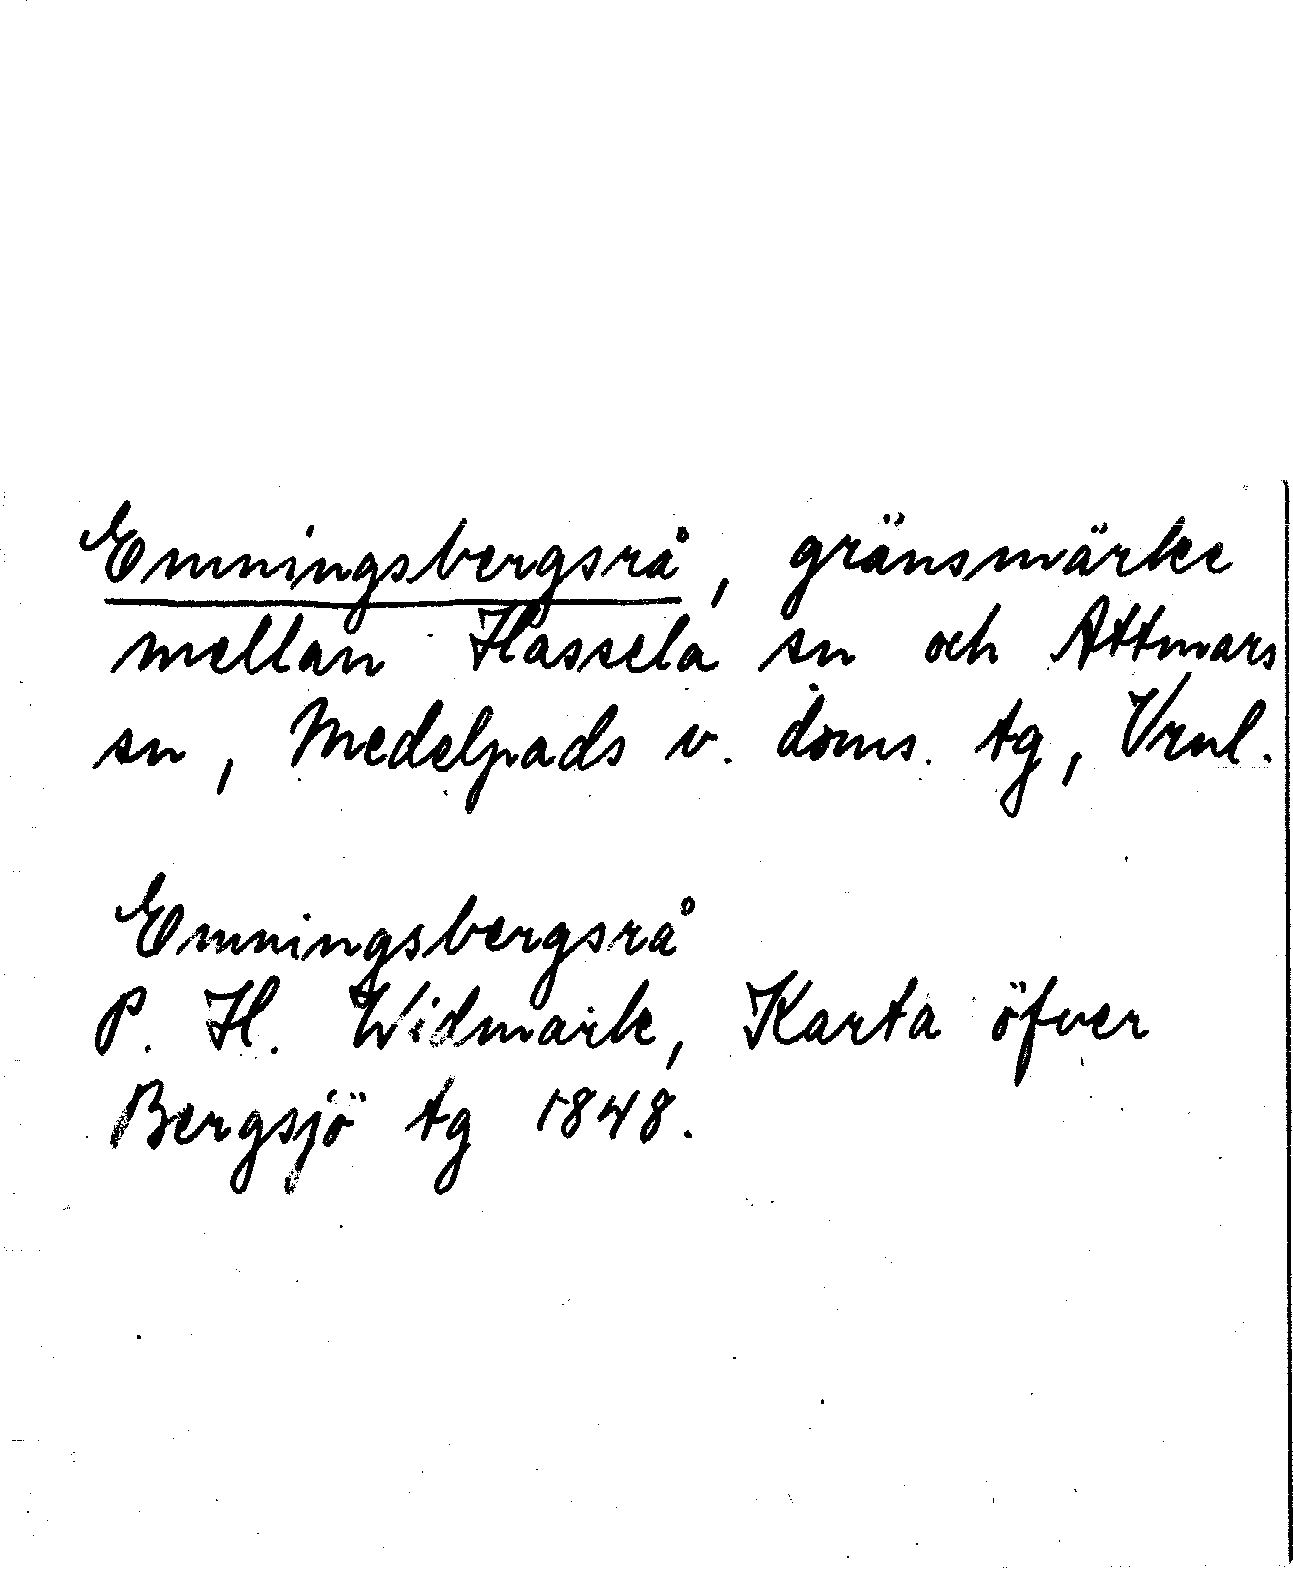 Emningsbergsrå, gränsmärke
mellan Hassela sn och Attmars
sn, Medelpads v. doms. tg, Vrnl.
Emningsbergsrå
P. H. Widmark, Karta öfver
Bergsjö tg 1848.